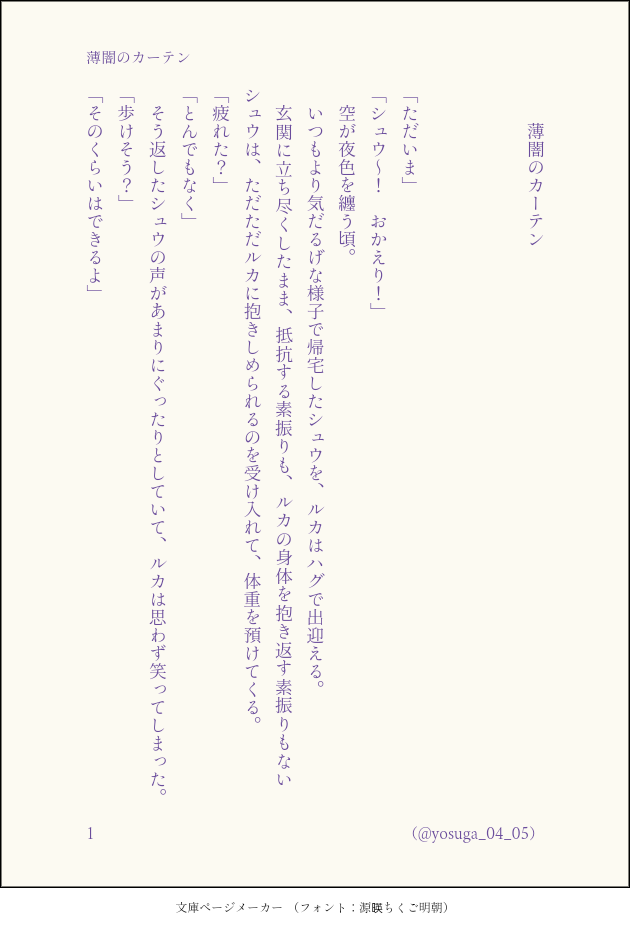 薄闇のカーテン
薄闇のカーテン
「ただいま」
「シュウ〜！　おかえり！」
　空が夜色を纏う頃。
　いつもより気だるげな様子で帰宅したシュウを、ルカはハグで出迎える。
　玄関に立ち尽くしたまま、抵抗する素振りも、ルカの身体を抱き返す素振りもない
シュウは、ただただルカに抱きしめられるのを受け入れて、体重を預けてくる。
「疲れた？」
「とんでもなく」
　そう返したシュウの声があまりにぐったりとしていて、ルカは思わず笑ってしまった。
「歩けそう？」
「そのくらいはできるよ」
1
（@yosuga_04_05）
文庫ページメーカー　（フォント：源暎ちくご明朝）